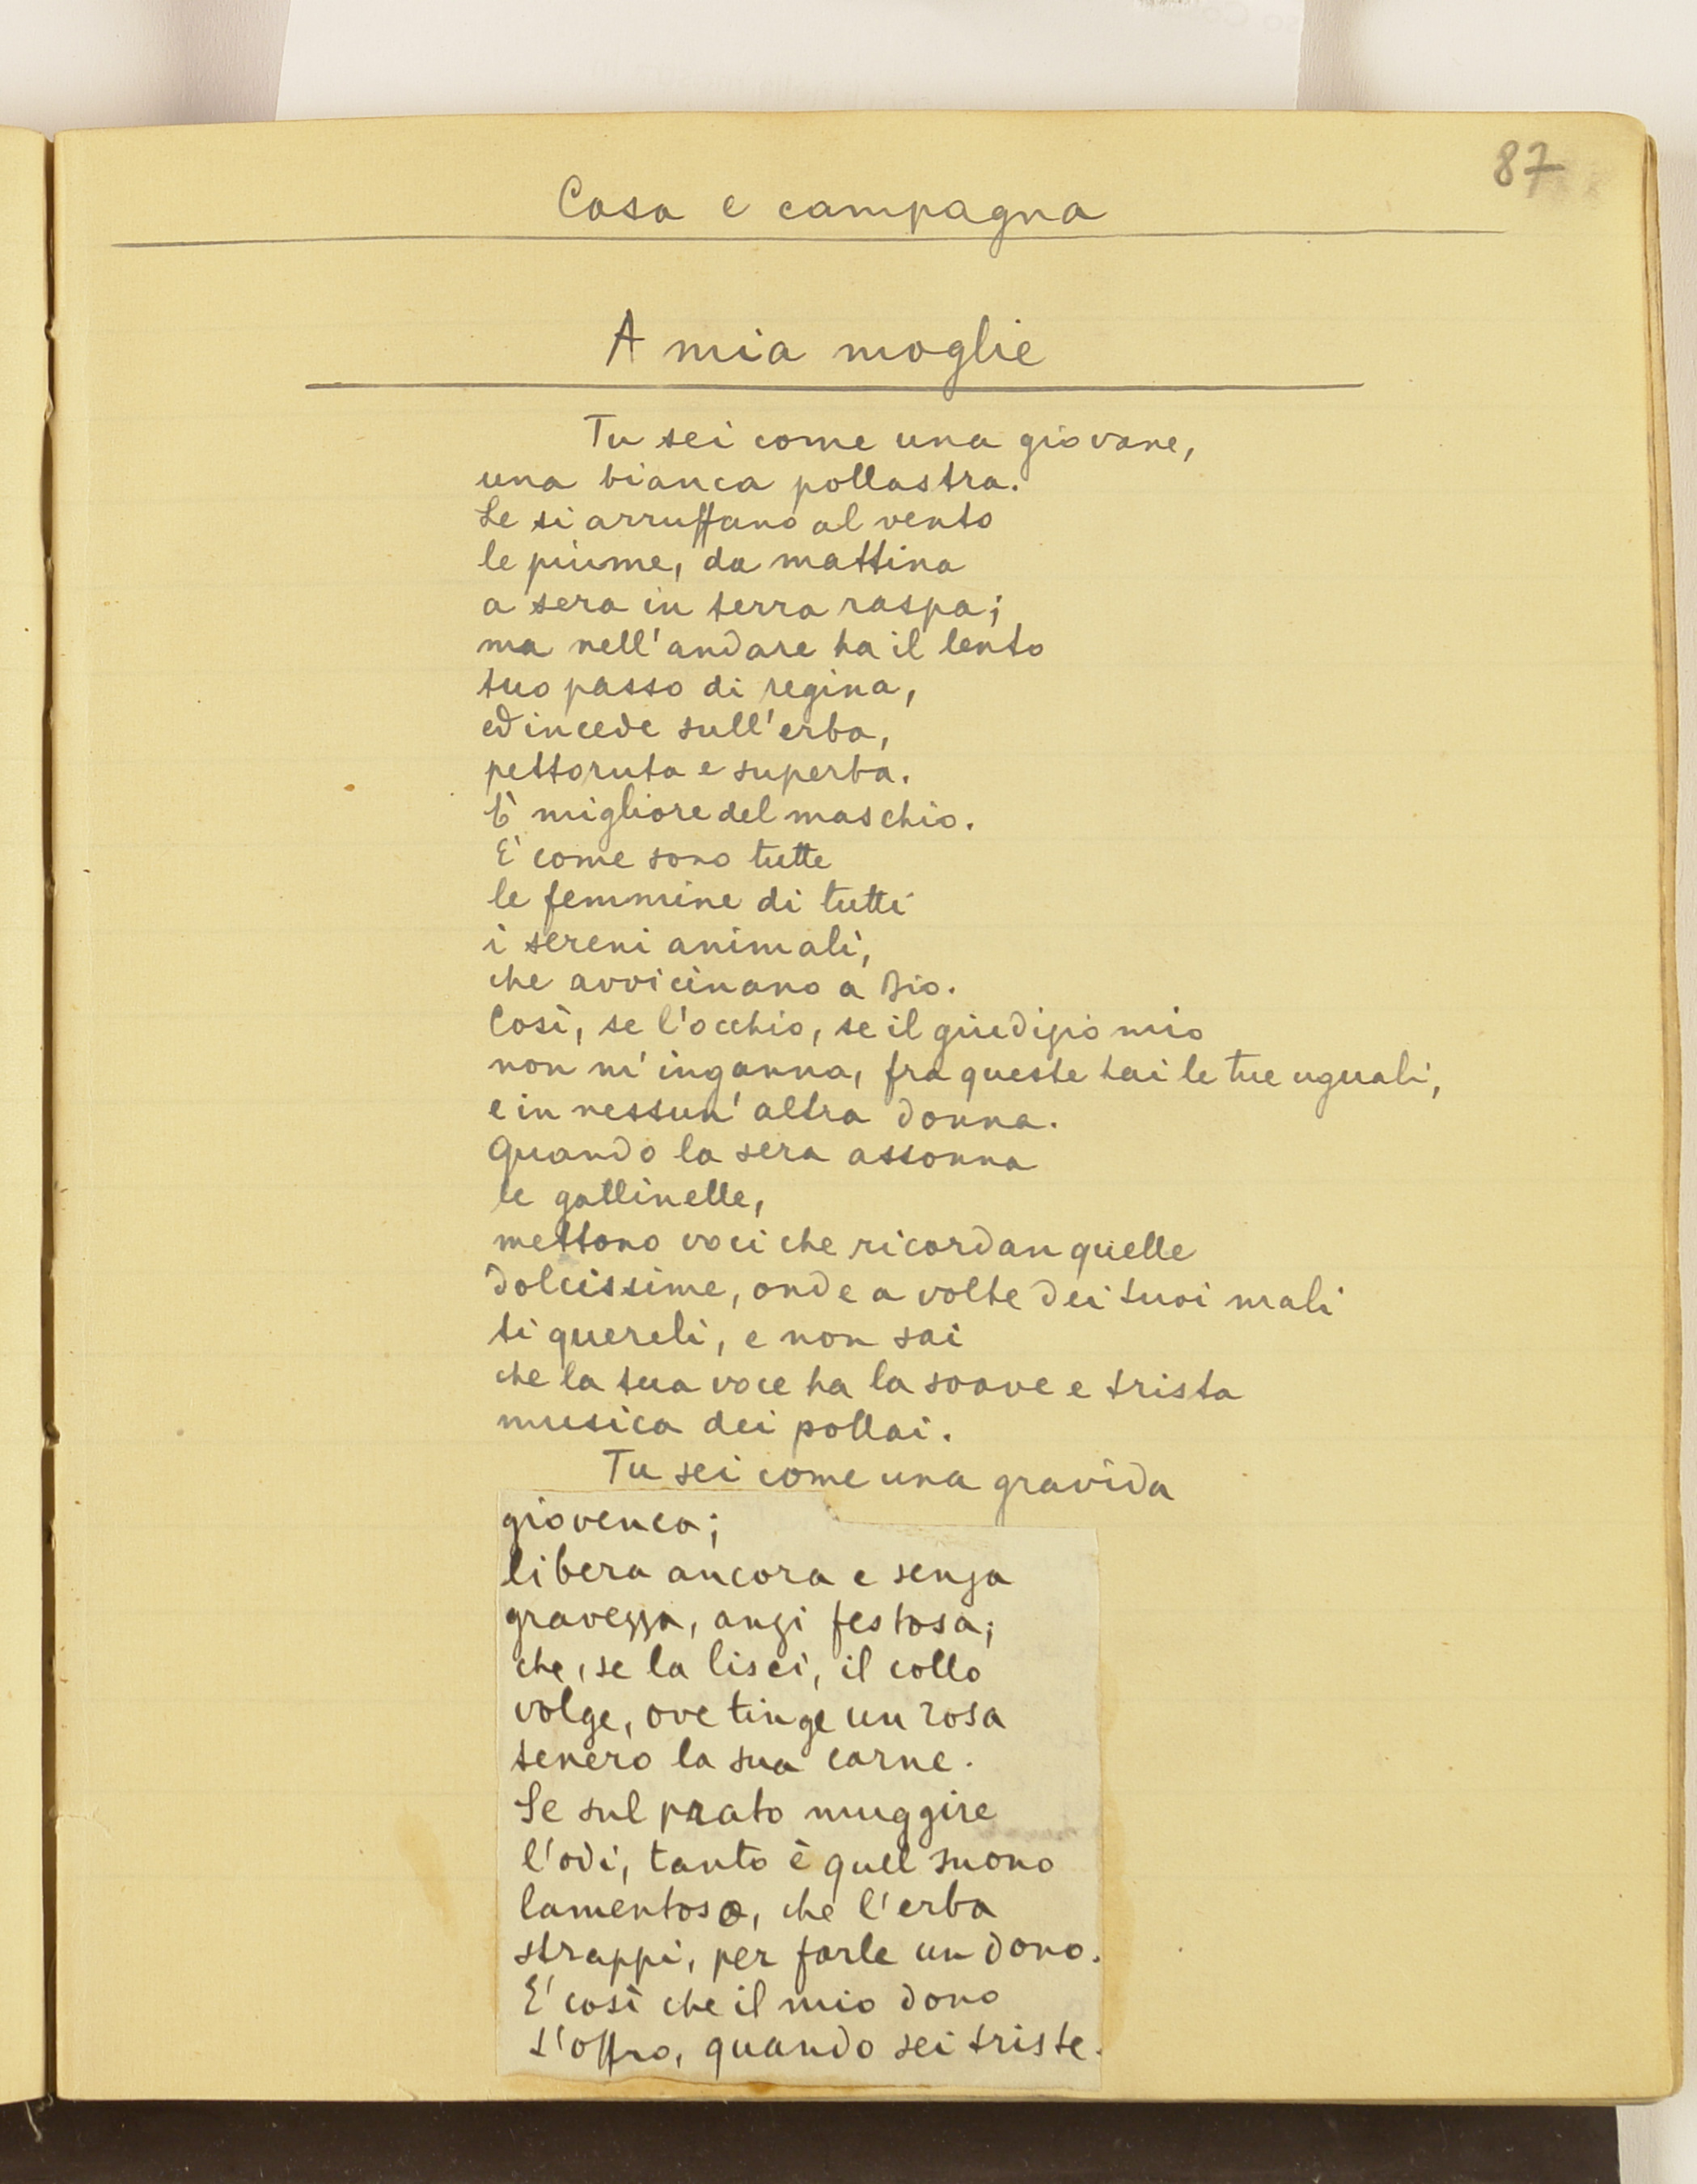 87
Casa e campagna
A mia moglie
Tu sei come una giovane,
una bianca pollastra.
Le si arruffano al vento
le piume, da mattina
a sera in terra raspa;
ma nell'andare ha il lento
tuo passo di regina,
ed incede sull'erba,
pettoruta e superba.
È migliore del maschio.
E' come sono tutte
le femmine di tutti
i sereni animali,
che avvicinano a Dio.
Così, se l'occhio, se il giudizio mio
non m'inganna, fra queste hai le tue uguali,
e in nessun'altra donna.
Quando la sera assonna
le gallinelle,
mettono voci che ricordan quelle
dolcissime, onde a volte dei tuoi mali
ti quereli, e non sai
che la tua voce ha la soave e trista
musica dei pollai.
Tu sei come una gravida
giovenca;
libera ancora e senza
gravezza, anzi festosa;
che, se la lisci, il collo
volge, ove tinge un rosa
tenero la sua carne.
Se sul prato muggire
l'odi, tanto è quel suono
lamentoso, che l'erba
strappi, per farle un dono.
E' così che il mio dono
t'offro, quando sei triste.